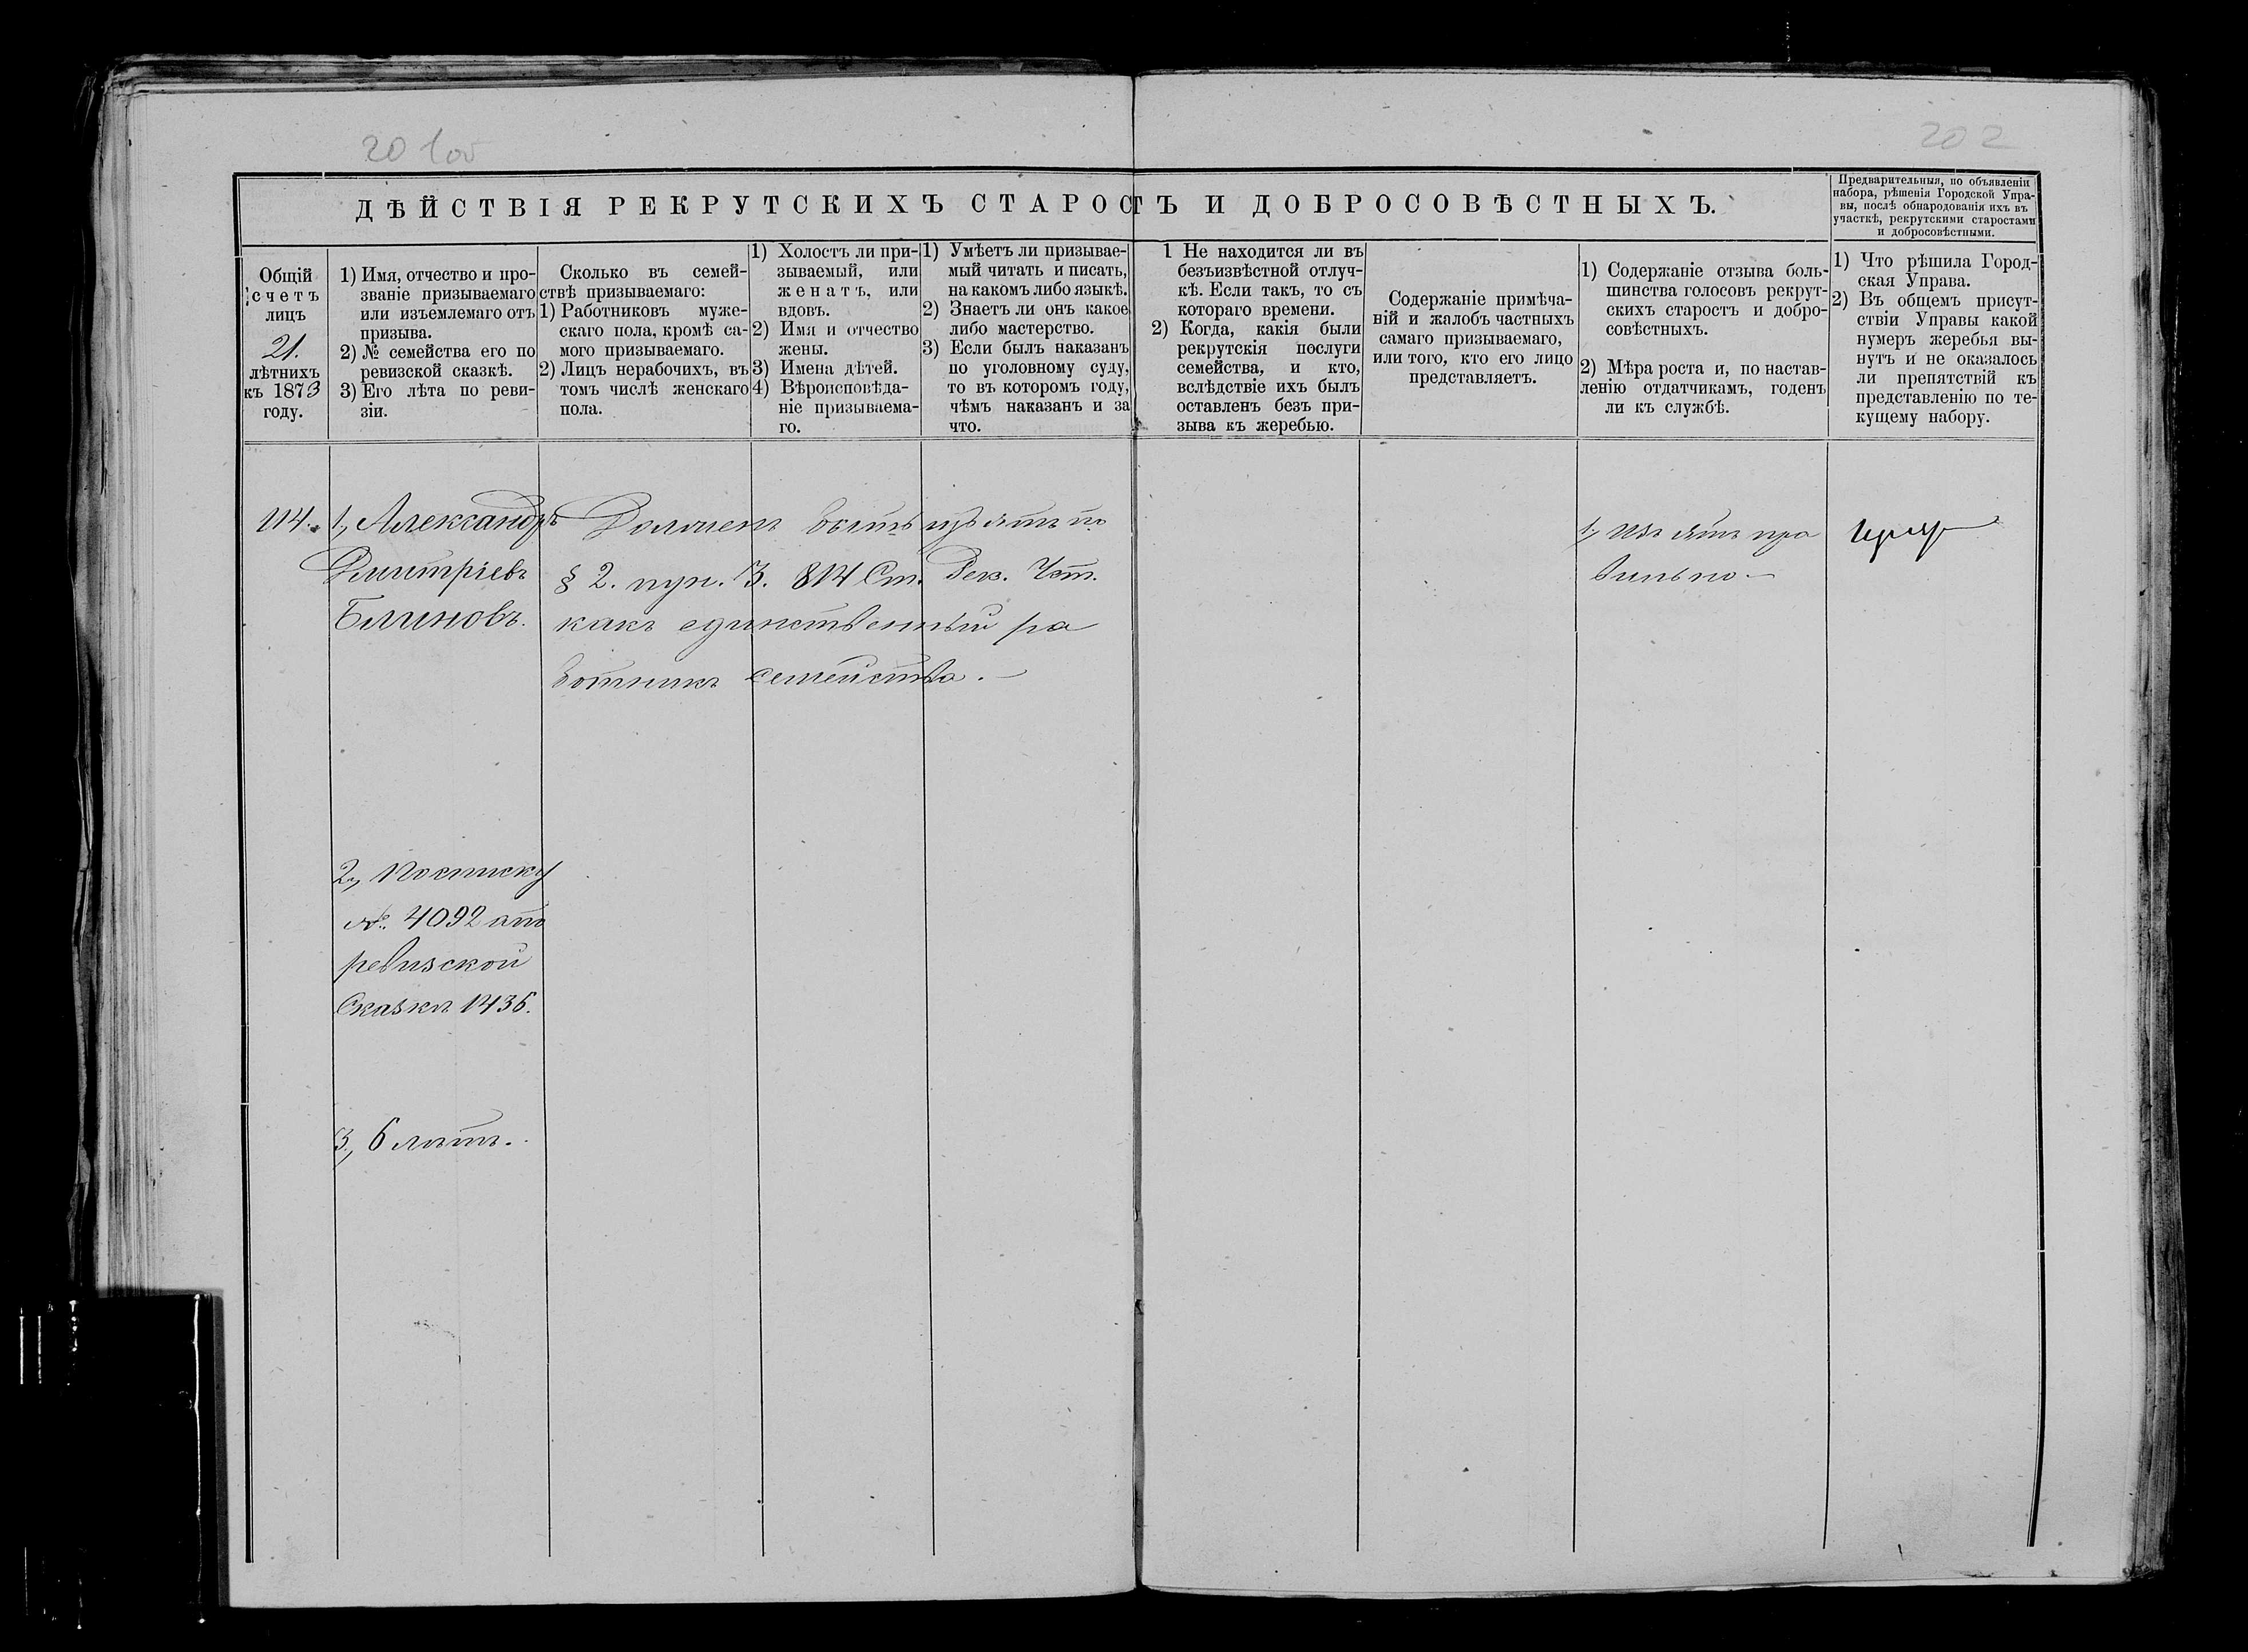 201об
202
ДѢЙСТВІЯ РЕКРУТСКИХЪ СТАРОСТЪ И ДОБРОСОВѢСТНЫХЪ.
Предварительныя, по объявленіи
набора, рѣшенія Городской Упра-
вы, послѣ обнародованія ихъ въ
участкѣ, рекрутскими старостами
и добросовѣстными.
Общій
счетъ
лицъ
21.
лѣтнихъ
къ 1873
году.
1) Имя, отчество и про-
званіе призываемаго
или изъемлемаго отъ
призыва.
2) № семейства его по
ревизской сказкѣ.
3) Его лѣта по реви-
зіи.
Сколько въ семей-
ствѣ призываемаго:
1) Работниковъ муже-
скаго пола, кромѣ са-
мого призываемаго.
2) Лицъ нерабочихъ, въ
томъ числѣ женскаго
пола.
1) Холостъ ли при-
зываемый, или
женатъ, или
вдовъ.
2) Имя и отчество
жены.
3) Имена дѣтей.
4) Вѣроисповѣда-
ніе призываема-
го.
1) Умѣетъ ли призывае-
мый читать и писать,
на какомъ либо языкѣ.
2) Знаетъ ли онъ какое
либо мастерство.
3) Если былъ наказанъ
по уголовному суду,
то въ которомъ году,
чѣмъ наказанъ и за
что.
1 Не находится ли въ
безъизвѣстной отлуч-
кѣ. Если такъ, то съ
котораго времени.
2) Когда, какія были
рекрутскія послуги
семейства, и кто,
вслѣдствіе ихъ былъ
оставленъ безъ при-
зыва къ жеребью.
Содержаніе примѣча-
ній и жалобъ частныхъ
самаго призываемаго,
или того, кто его лицо
представляетъ.
1) Содержаніе отзыва боль-
шинства голосовъ рекрут-
скихъ старостъ и добро-
совѣстныхъ.
2) Мѣра роста и, по настав-
ленію отдатчикамъ, годенъ
ли къ службѣ.
1) Что рѣшила Город-
ская Управа.
2) Въ общемъ присут-
ствіи Управы какой
нумеръ жеребья вы-
нутъ и не оказалось
ли препятствій къ
представленію по те-
кущему набору.
114. 1, Александръ
Дмитріевъ
Блиновъ.
Долженъ быть изъятъ по
§ 2. пун. 3. 814 Ст. Рек. Уст.
какъ единственный ра
ботникъ семейства. —
1, Изъятъ пра
вильно —
2, По списку
№. 4092 а по
ревизской
Сказкѣ 1436.
3, 6 лѣтъ.